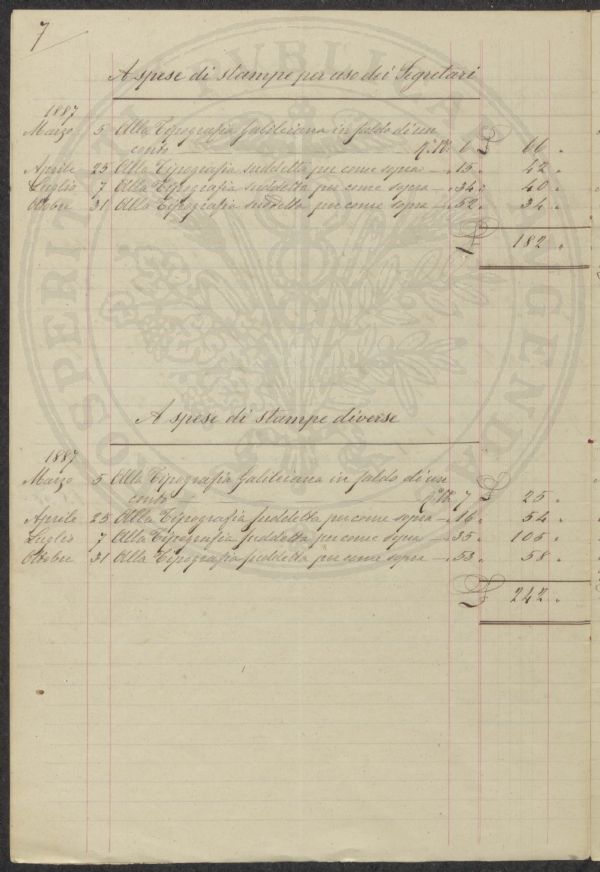 7
A spese di stampe per uso dei Segretari
1887
Marzo 5 Alla Tipografia Galileiana in saldo di un
conto 6 £ 66 "
Aprile 25 Alla Tipografia suddetta per come sopra " 15 " 42 "
Luglio 7 Alla Tipografia suddetta per come sopra " 34 " 40 "
Ottobre 31 Alla Tipografia suddetta per come sopra " 52 " 34 "
£ 182 "
A spese di stampe diverse
1887
Marzo 5 Alla Tipografia Galileiana in saldo di un
conto 7 £ 25 "
Aprile 25 Alla Tipografia suddetta per come sopra " 16 " 54 "
Luglio 7 Alla Tipografia suddetta per come sopra " 35 " 105 "
Ottobre 31 Alla Tipografia suddetta per come sopra " 53 " 58 "
£ 242 "
PROSPERITATI PUBLICAE AUGENDAE